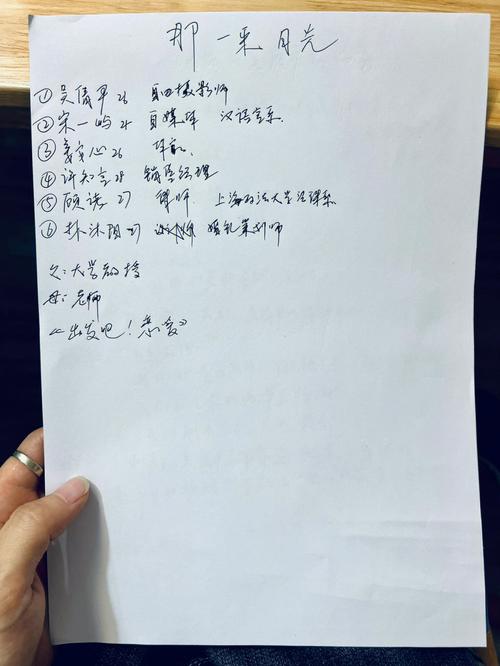 那一束月光
① 吴儀早 26 自由摄影师
② 宋一屿 24 自媒体 汉语言系
③ 26
④ 许知言 28 销售经理
⑤ 顾诺 27 律师 上海政法大学法律系
⑥ 林沐阳 27 婚礼策划师
父:大学教授
母:老师
《出发吧!恋爱》